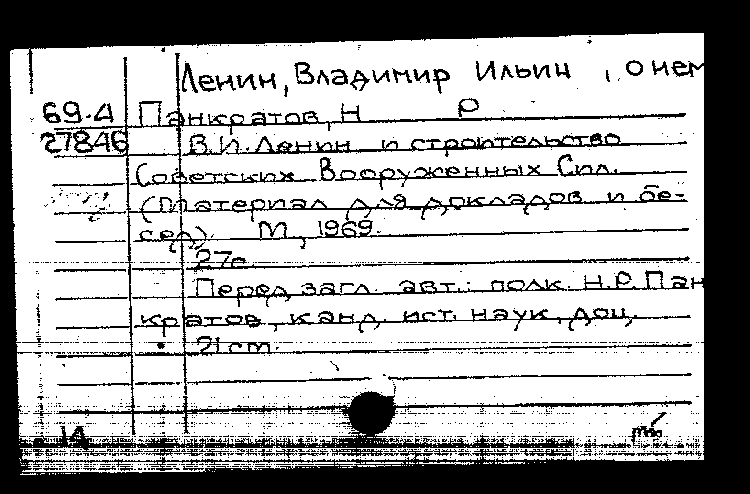 Ленин, Владимир Ильин, о нем
69-4 Панкратов, Н Р
27846 В.И. Ленин и строительство
Советских Вооруженных Сил.
(Материал для докладов и бе-
сед). М, 1969.
27с.
Перед загл. авт.: полк. Н.Р. Пан
кратов, канд. ист. наук, доц.
21 cm.
14